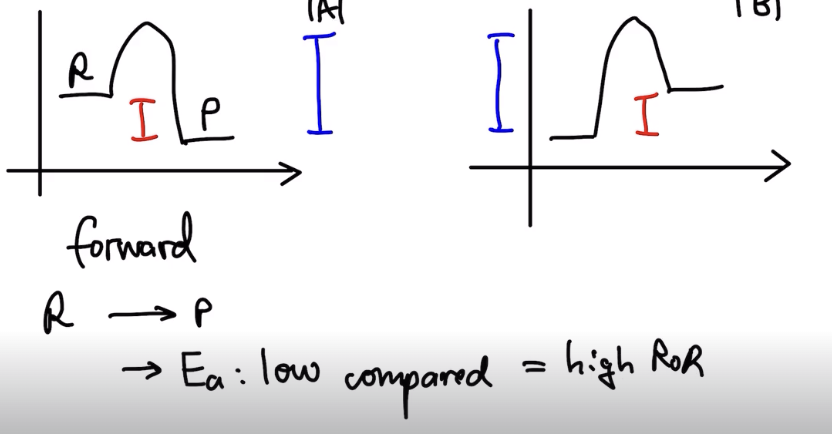 |A|
|B|
R
P
forward
R → P
→ Ea: low compared = high RoR